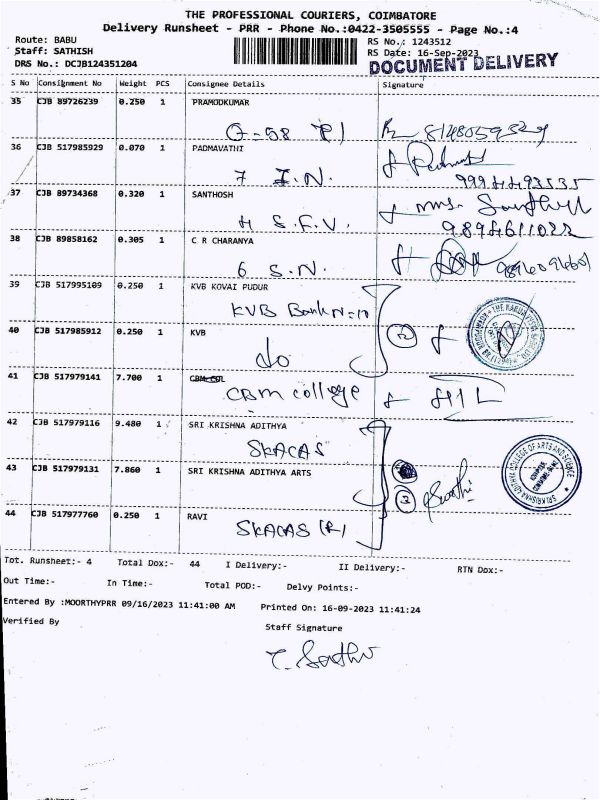 THE PROFESSIONAL COURIERS, COIMBATORE
Delivery Runsheet - PRR - Phone No.:0422-3505555 - Page No.:4
Route: BABU RS No.: 1243512
Staff: SATHISH RS Date: 16-Sep-2023
DRS No.: DCJB124351204 DOCUMENT DELIVERY
S No Consignment No Weight PCS Consignee Details Signature
35 CJB 89726239 0.250 1 PRAMODKUMAR
36 CJB 517985929 0.070 1 PADMAVATHI
7 I.N.
37 CJB 89734368 0.320 1 SANTHOSH
4 S.F.V.
9894611022
38 CJB 89858162 0.305 1 C R CHARANYA
6 S.N.
39 CJB 517995109 0.250 1 KVB KOVAI PUDUR
KVB Bank
40 CJB 517985912 0.250 1 KVB
do
41 CJB 517979141 7.700 1 CBM COL
CBM college
42 CJB 517979116 9.480 1 SRI KRISHNA ADITHYA
SKACAS
43 CJB 517979131 7.860 1 SRI KRISHNA ADITHYA ARTS
44 CJB 517977760 0.250 1 RAVI
SKACAS (R)
Tot. Runsheet:- 4 Total Dox:- 44 I Delivery:- II Delivery:- RTN Dox:-
Out Time:- In Time:- Total POD:- Delvy Points:-
Entered By :MOORTHYPRR 09/16/2023 11:41:00 AM Printed On: 16-09-2023 11:41:24
Verified By Staff Signature